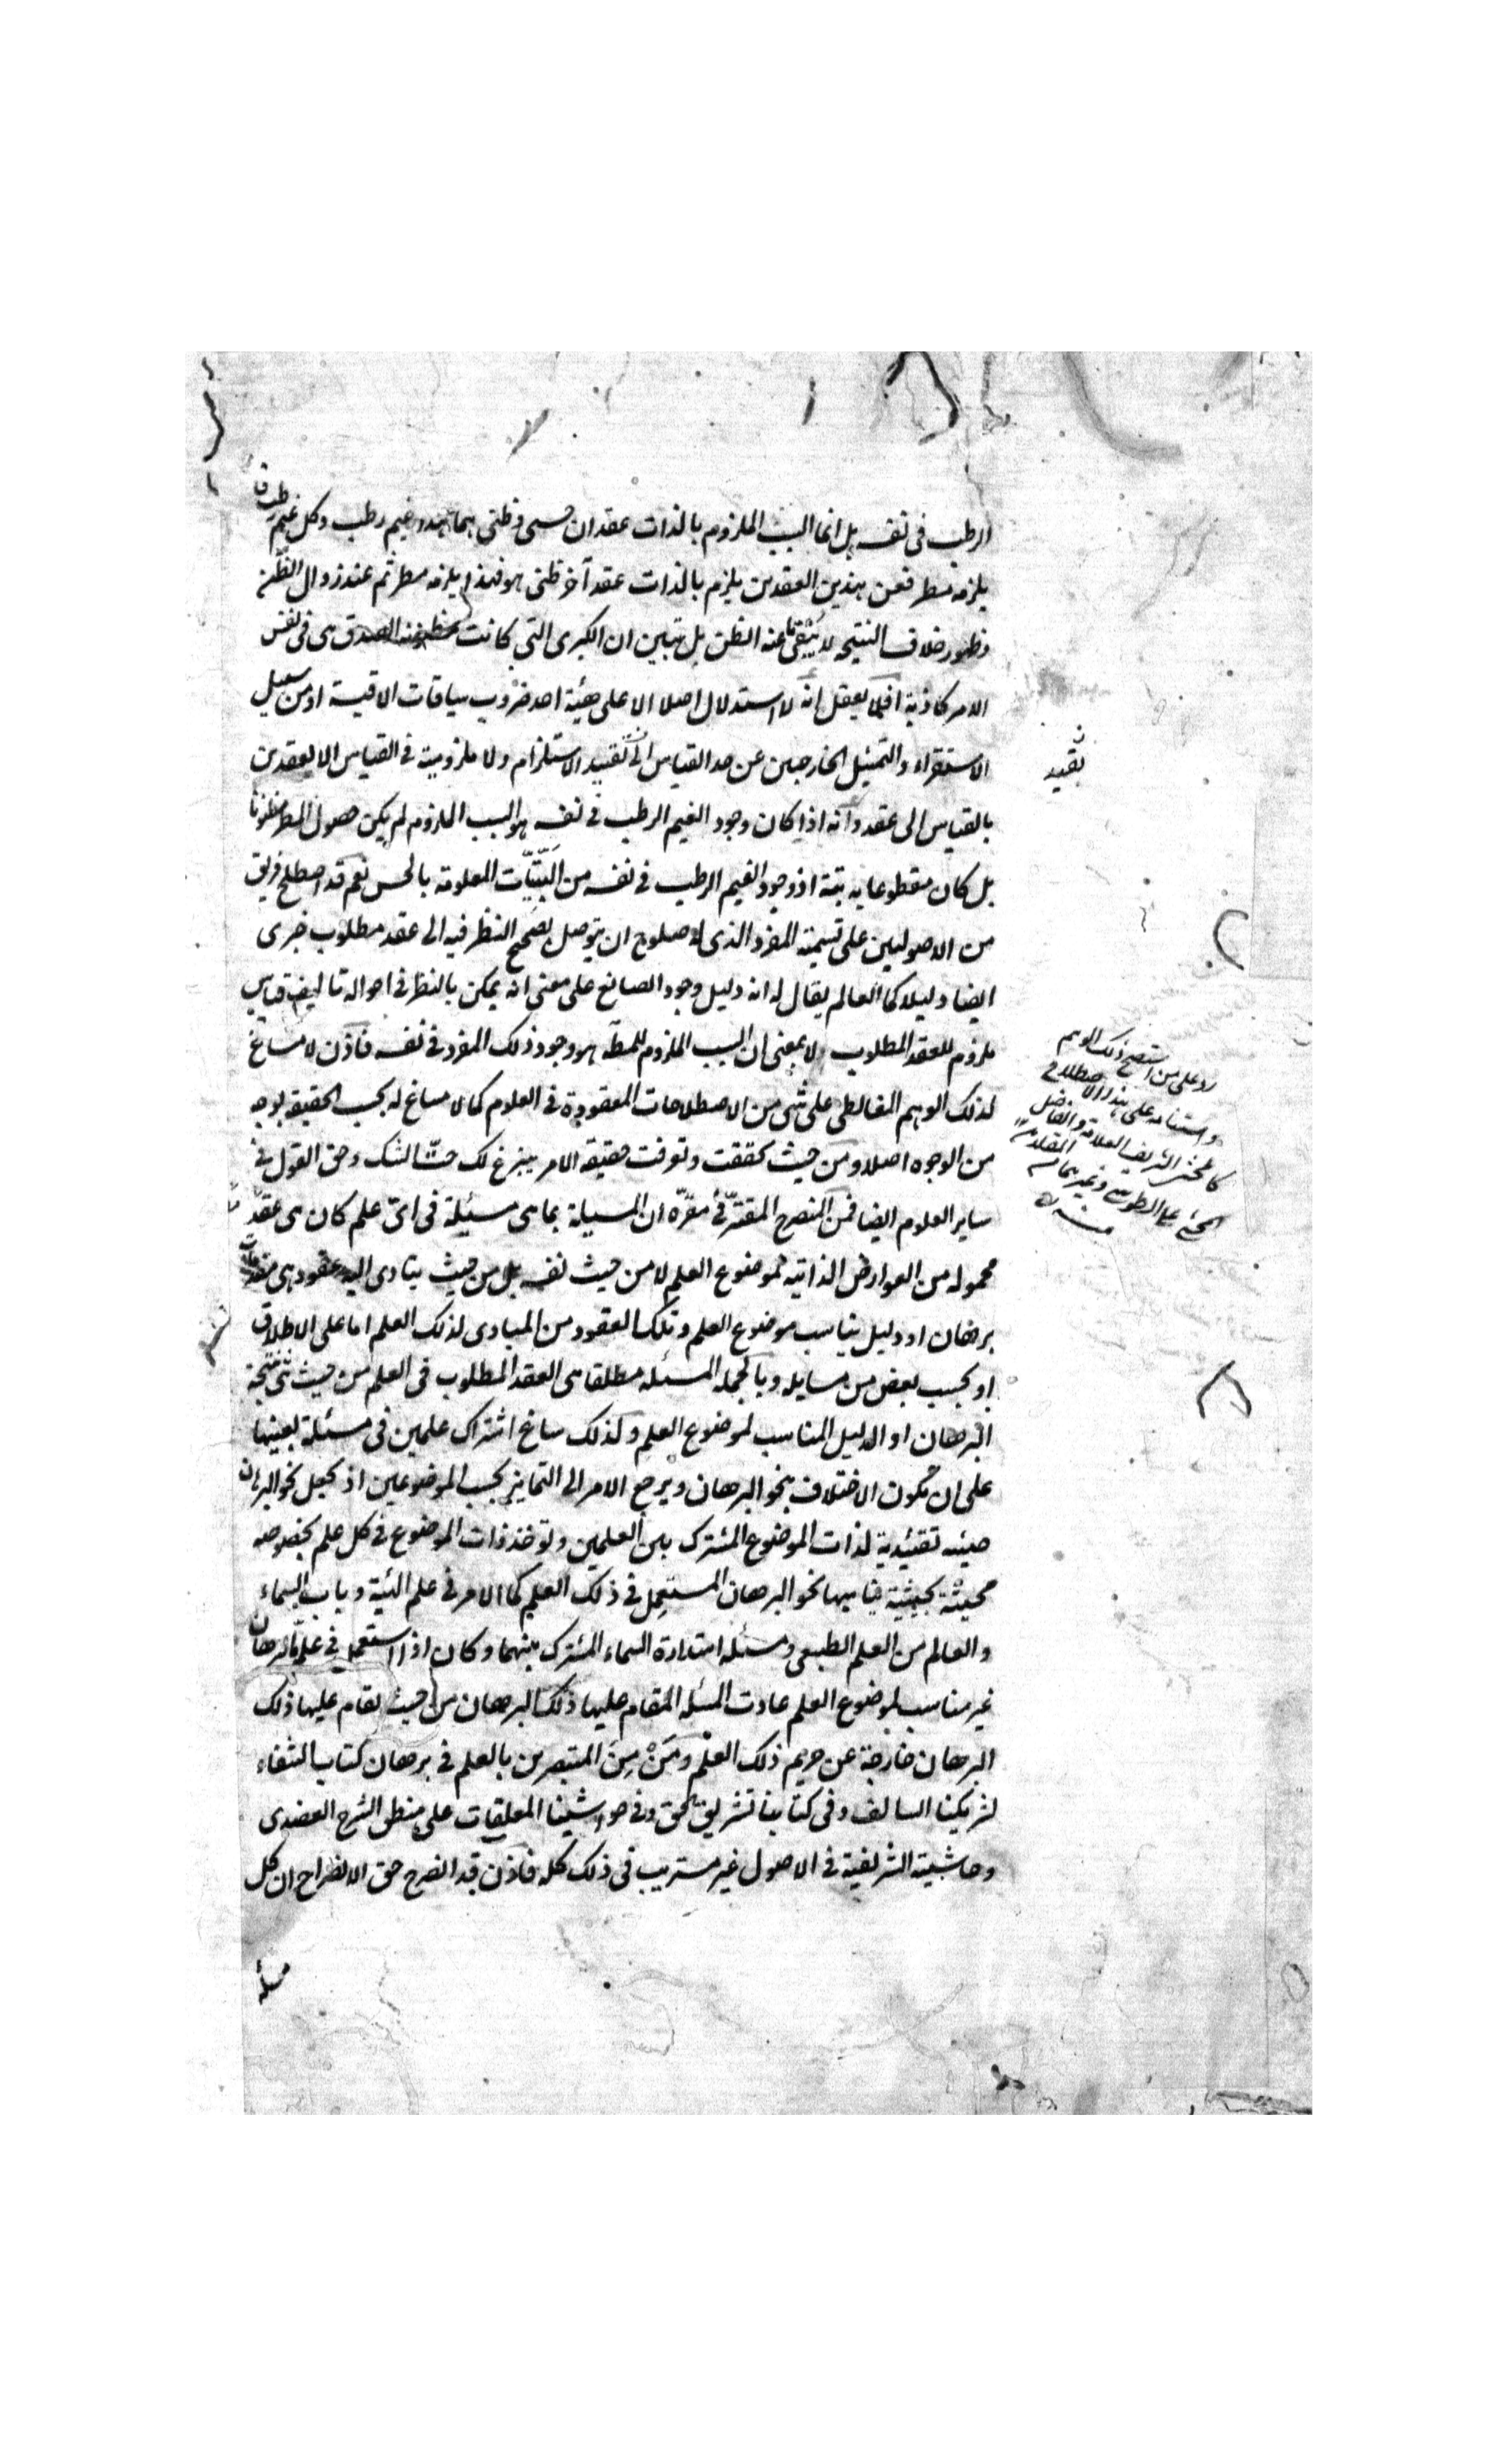 الرطب فى نفسه بل انما السبب الملزوم بالذات عقدان حسى وظنى هما هذا غيم رطب وكل غيم رطب
يلزمه مطر فعن هذين العقدين يلزم بالذات عقد آخر ظنى هو فهذا يلزمه مطر ثم عند زوال الظن
وظهور خلاف النتيجة لا ينتفى عنه الظن بل تبين ان الكبرى التى كانت مظنونة الصدق هى فى نفس
الامر كاذبة افلا يعقل انه لا استدلال اصلا الا على هيئة احد ضروب سياقات الاقيسة او من سبيل
الاستقراء والتمثيل الخارجين عن حد القياس الى تقييد الاستلزام ولا ملزومية فى القياس الا لعقدين
بالقياس الى عقد وانه اذا كان وجود الغيم الرطب فى نفسه هو السبب الملزوم لم يكن حصول المطر مظنونا
بل كان مقطوعا به بتة اذ وجود الغيم الرطب فى نفسه من البتيات المعلومة بالحس نعم قد اصطلح فريق
من الاصوليين على تسمية المفرد الذى له صلوح ان يتوصل بصحيح النظر فيه الى عقد مطلوب خبرى
ايضا دليلا كما العالم يقال له انه دليل وجود الصانع على معنى انه يمكن بالنظر فى احواله تاليف قياس
ملزوم للعقد المطلوب لا بمعنى ان السبب الملزوم للمط هو وجود ذلك المفرد فى نفسه فاذن لا مساغ
لذلك الوهم المغالطى على شئ من الاصطلاحات المعقودة فى العلوم كما لا مساغ له بحسب الحقيقة بوجه
من الوجوه اصلا ومن حيث تحققت وتعرفت حقيقة الامر ينبزغ لك حتّ الشك وحق القول فى
ساير العلوم ايضا فمن المنصرح المقترّ فى مقرّه ان المسيلة بما هى مسيلة فى اىّ علم كان هى عقد
محموله من العوارض الذاتية لموضوع العلم لا من حيث نفسه بل من حيث يتادى اليه عقود هى مقدمات
برهان او دليل يناسب موضوع العلم وتلك العقود من المبادى لذلك العلم اما على الاطلاق
او بحسب بعض من مسايله وبالجملة المسئلة مطلقا هى العقد المطلوب فى العلم من حيث هى نتيجة
البرهان او الدليل المناسب لموضوع العلم وكذلك ساغ اشتراك علمين فى مسئلة بعينها
على ان يكون الاختلاف بنحو البرهان ويرجع الامر الى التمايز بحسب الموضوعين اذ يجعل نحو البرهان
حيثية تقييدية لذات الموضوع المشترك بين العلمين وتوخذ ذات الموضوع فى كل علم بخصوصه
محيثة بحيثية يناسبها نحو البرهان المستعمل فى ذلك العلم كما الامر فى علم الهيئة وباب السماء
والعالم من العلم الطبيعى ومسئلة استدارة السماء المشترك بينهما وكان اذا استعمل فى علم برهان
غير مناسب لموضوع العلم عادت المسئلة المقام عليها ذلك البرهان من حيث يقام عليها ذلك
البرهان خارجة عن حريم ذلك العلم ومَنْ مِنَ المتبصرين بالعلم فى برهان كتاب الشفاء
لشريكنا السالف وفى كتابنا تشريق الحق وفى حواشينا المعلقات على منطق الشرح العضدى
وحاشيته الشريفية فى الاصول غير مستريب فى ذلك كله فاذن قد انصرح حق الانصراح ان كل
مسئلة
تقييد
رد على من استصح ذلك الوهم
واستناده على هذا الاصطلاح
كالمحشى الشريف العلامة والفاضل